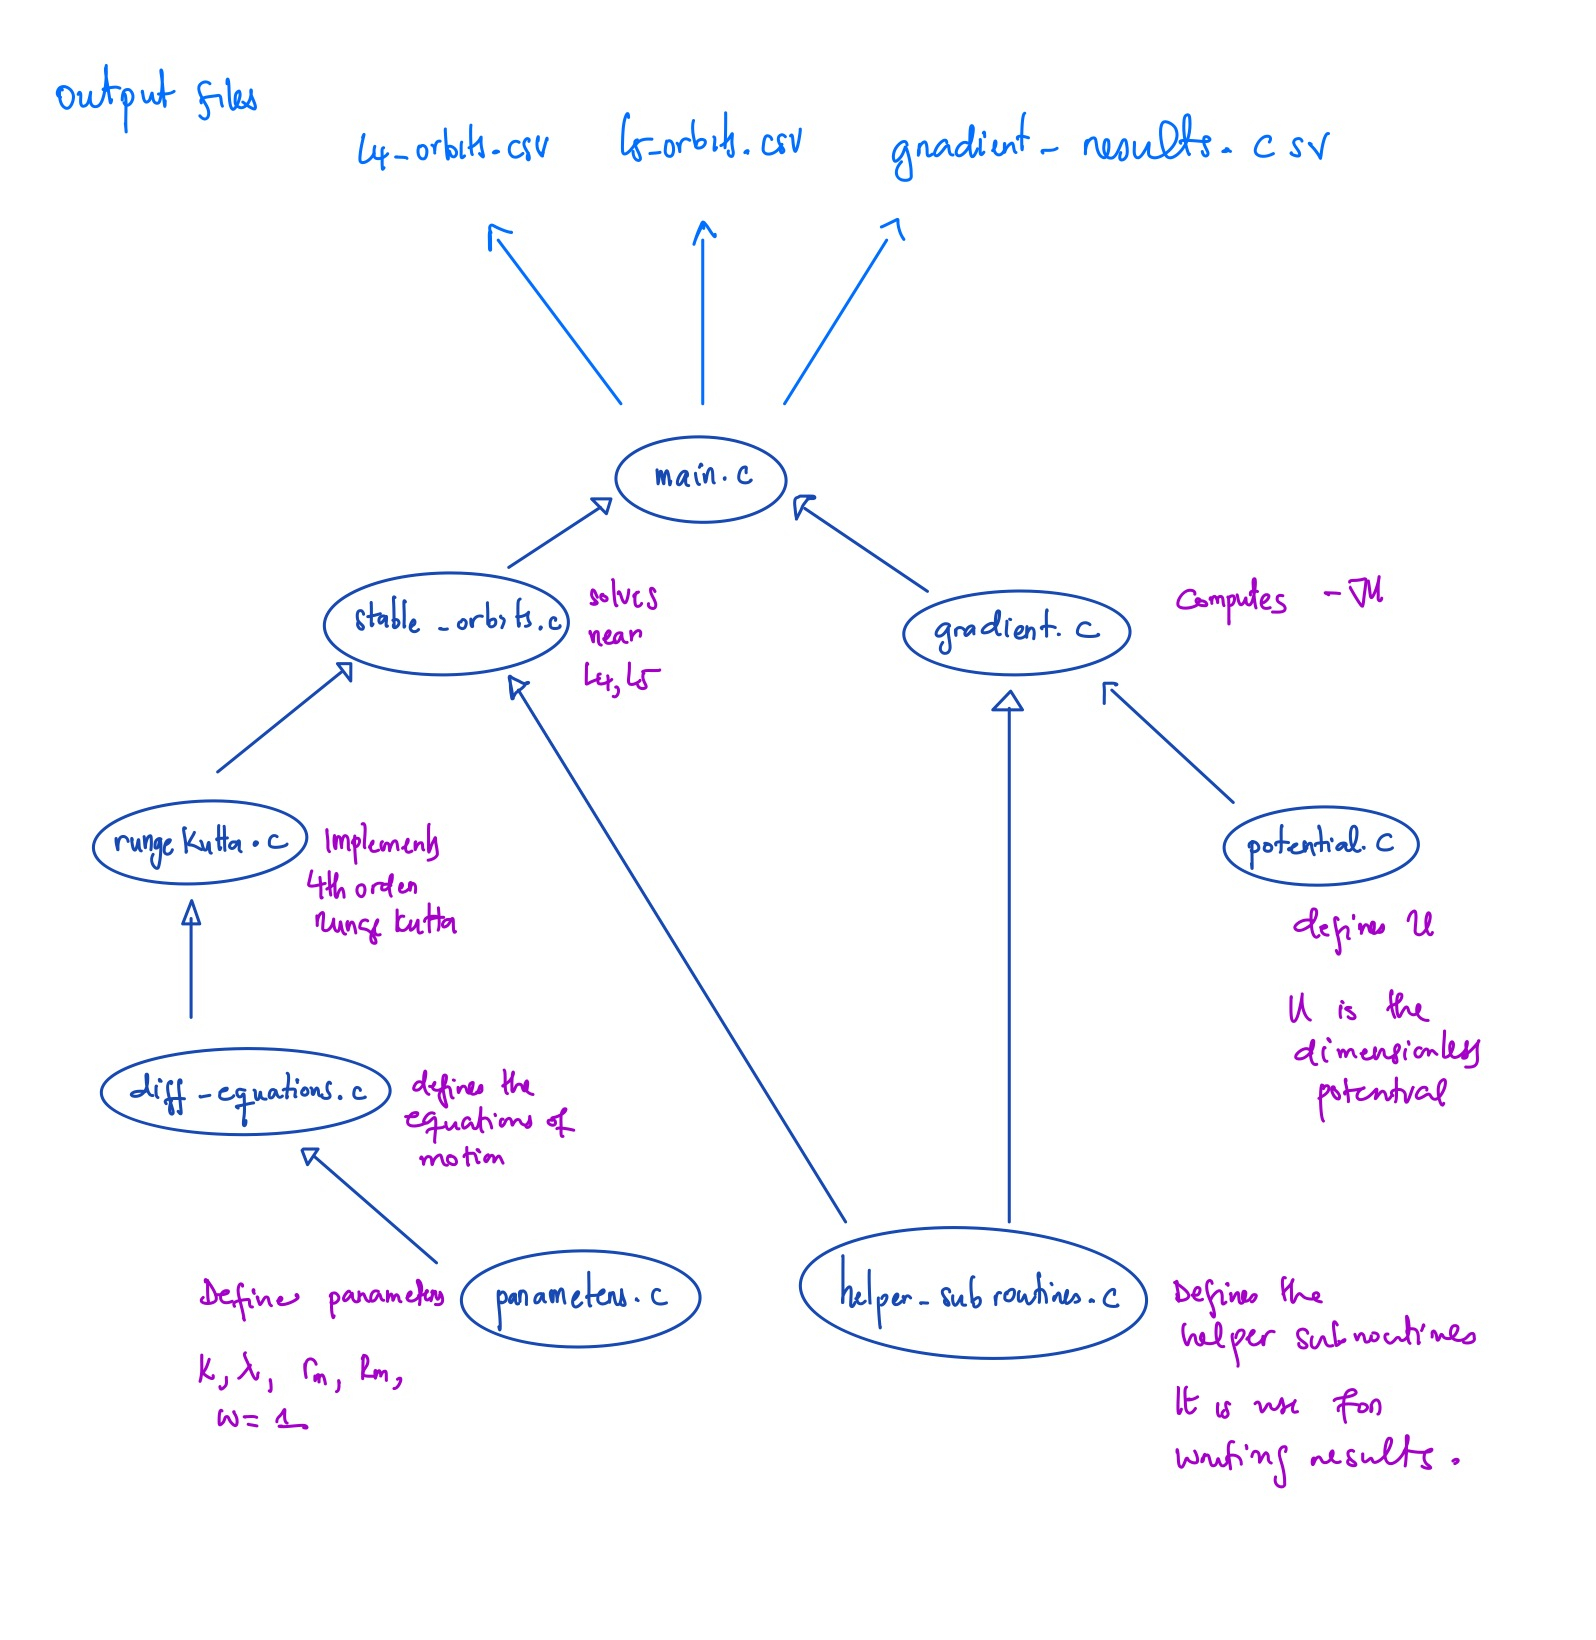 output files
L4_orbits.csv L5_orbits.csv gradient_results.csv
main.c
stable_orbits.c
solves
near
L4, L5
gradient.c
Computes -∇U
rungeKutta.c
Implements
4th order
runge kutta
potential.c
defines U
U is the
dimensionless
potential
diff_equations.c
defines the
equations of
motion
Define parameters
K, λ, rm, Rm,
ω = 1
parameters.c
helper_subroutines.c
Defines the
helper subroutines
It is use for
writing results.